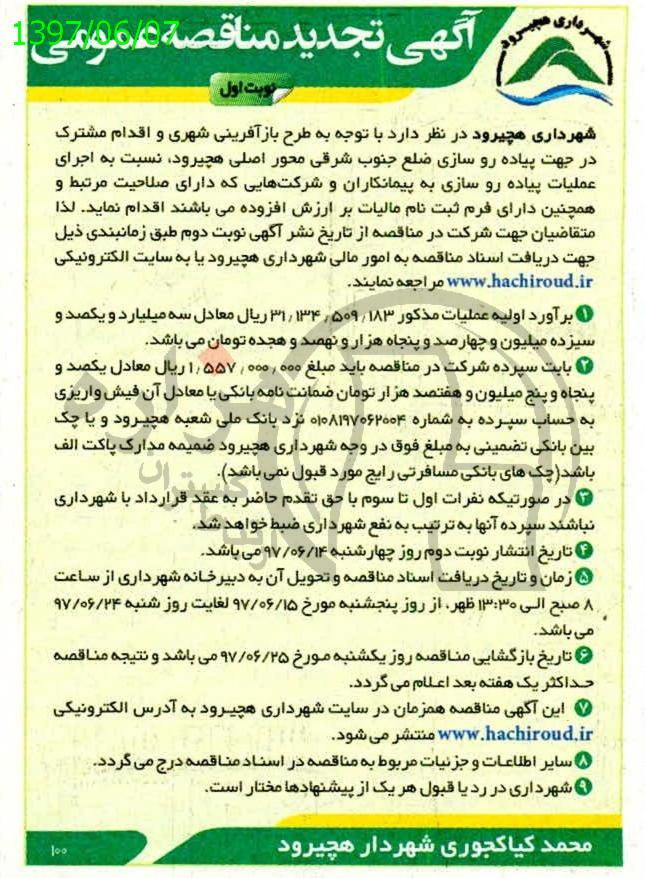 1397/06/07
آگهی تجدید مناقصه عمومی
شهرداری هچیرود
نوبت اول
شهرداری هچیرود در نظر دارد با توجه به طرح بازآفرینی شهری و اقدام مشترک
در جهت پیاده رو سازی ضلع جنوب شرقی محور اصلی هچیرود، نسبت به اجرای
عملیات پیاده رو سازی به پیمانکاران و شرکت‌هایی که دارای صلاحیت مرتبط و
همچنین دارای فرم ثبت نام مالیات بر ارزش افزوده می باشند اقدام نماید. لذا
متقاضیان جهت شرکت در مناقصه از تاریخ نشر آگهی نوبت دوم طبق زمانبندی ذیل
جهت دریافت اسناد مناقصه به امور مالی شهرداری هچیرود یا به سایت الکترونیکی
www.hachiroud.ir مراجعه نمایند.
۱ برآورد اولیه عملیات مذکور ۳۱٫۱۳۴٫۵۰۹٫۱۸۳ ریال معادل سه میلیارد و یکصد و
سیزده میلیون و چهارصد و پنجاه هزار و نهصد و هجده تومان می باشد.
۲ بابت سپرده شرکت در مناقصه باید مبلغ ۱٫۵۵۷٫۰۰۰٫۰۰۰ ریال معادل یکصد و
پنجاه و پنج میلیون و هفتصد هزار تومان ضمانت نامه بانکی یا معادل آن فیش واریزی
به حساب سپرده به شماره ۰۱۰۸۱۹۷۰۶۲۰۰۴ نزد بانک ملی شعبه هچیرود و یا چک
بین بانکی تضمینی به مبلغ فوق در وجه شهرداری هچیرود ضمیمه مدارک پاکت الف
باشد(چک های بانکی مسافرتی رایج مورد قبول نمی باشد).
۳ در صورتیکه نفرات اول تا سوم با حق تقدم حاضر به عقد قرارداد با شهرداری
نباشند سپرده آنها به ترتیب به نفع شهرداری ضبط خواهد شد.
۴ تاریخ انتشار نوبت دوم روز چهارشنبه ۹۷/۰۶/۱۴ می باشد.
۵ زمان و تاریخ دریافت اسناد مناقصه و تحویل آن به دبیرخانه شهرداری از ساعت
۸ صبح الی ۱۳:۳۰ ظهر، از روز پنجشنبه مورخ ۹۷/۰۶/۱۵ لغایت روز شنبه ۹۷/۰۶/۲۴
می باشد.
۶ تاریخ بازگشایی مناقصه روز یکشنبه مورخ ۹۷/۰۶/۲۵ می باشد و نتیجه مناقصه
حداکثر یک هفته بعد اعلام می گردد.
۷ این آگهی مناقصه همزمان در سایت شهرداری هچیرود به آدرس الکترونیکی
www.hachiroud.ir منتشر می شود.
۸ سایر اطلاعات و جزئیات مربوط به مناقصه در اسناد مناقصه درج می گردد.
۹ شهرداری در رد یا قبول هر یک از پیشنهادها مختار است.
محمد کیاکجوری شهردار هچیرود
۱۰۰